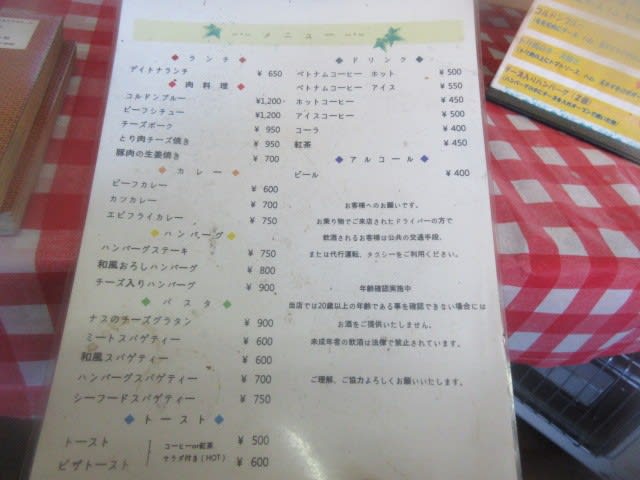 メニュー
ランチ
デイトナランチ ¥ 650
肉料理
コルドンブルー ¥1,200
ビーフシチュー ¥1,200
チーズポーク ¥ 950
とり肉チーズ焼き ¥ 950
豚肉の生姜焼き ¥ 700
カレー
ビーフカレー ¥ 600
カツカレー ¥ 700
エビフライカレー ¥ 750
ハンバーグ
ハンバーグステーキ ¥ 750
和風おろしハンバーグ ¥ 800
チーズ入りハンバーグ ¥ 900
パスタ
ナスのチーズグラタン ¥ 900
ミートスパゲティー ¥ 600
和風スパゲティー ¥ 600
ハンバーグスパゲティー ¥ 700
シーフードスパゲティー ¥ 750
トースト
トースト ¥ 500
ピザトースト ¥ 600
コーヒーor紅茶
サラダ付き(HOT)
ドリンク
ベトナムコーヒー ホット ¥ 500
ベトナムコーヒー アイス ¥ 550
ホットコーヒー ¥ 450
アイスコーヒー ¥ 500
コーラ ¥ 400
紅茶 ¥ 450
アルコール
ビール ¥ 400
お客様へのお願いです。
お乗り物でご来店されたドライバーの方で
飲酒されるお客様は公共の交通手段、
または代行運転、タクシーをご利用ください。
年齢確認実施中
当店では20歳以上の年齢である事を確認できない場合には
お酒をご提供いたしません。
未成年者の飲酒は法律で禁止されています。
ご理解、ご協力よろしくお願いいたします。
コルドンブルー
チーズ入りハンバーグ